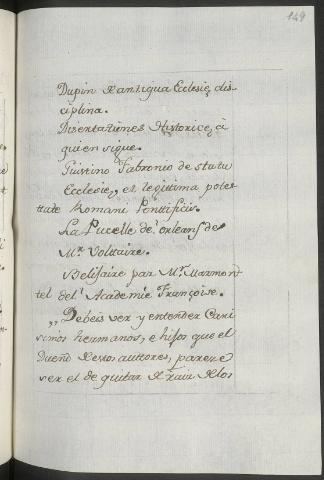 149
Dupin de antiqua Ecclesię dis-
ciplina.
Disertationes Historicę, à
quien sigue.
Juistino Fabronio de statu
Ecclesię, et legitima potes-
tate Romani Pontificis.
La Pucelle de' orleans de
Mr. Volttaire.
Belisaire par Mr. Marmont-
tel del' Academie Françoise.
„ Debeis ver y entender Cari-
simos hermanos, e hijos que el
de exos auttores, parece
ver el de quitar de raiz de los